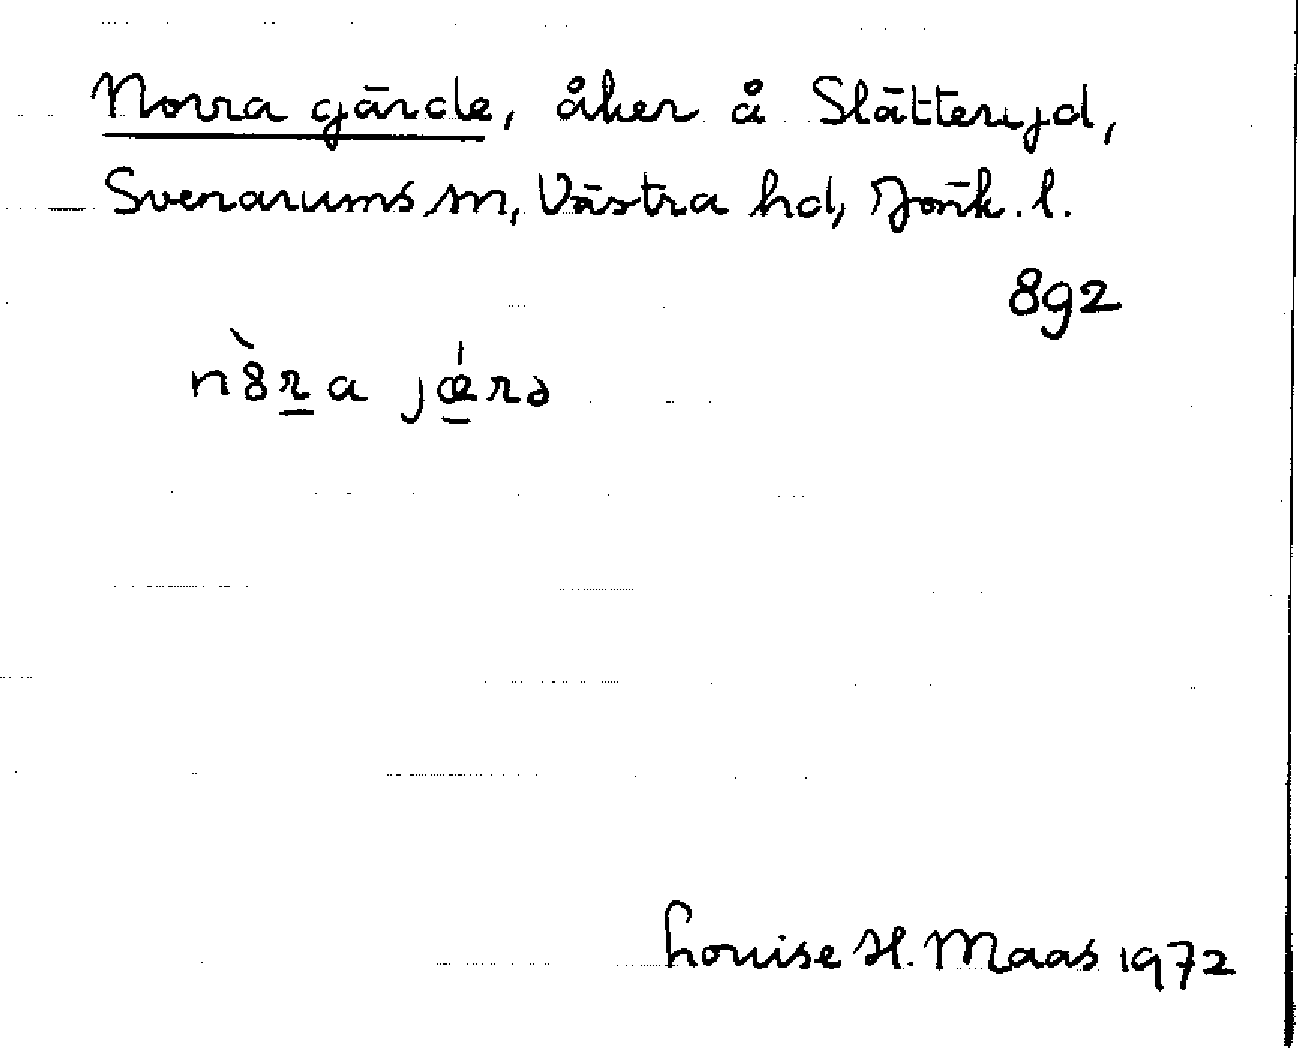 Norra gärde, åker å Slätteryd,
Svenarums sn, Västra hd, Jönk. l.
892
n8̀ṟa jǽ̱rə
Louise H. Maas 1972